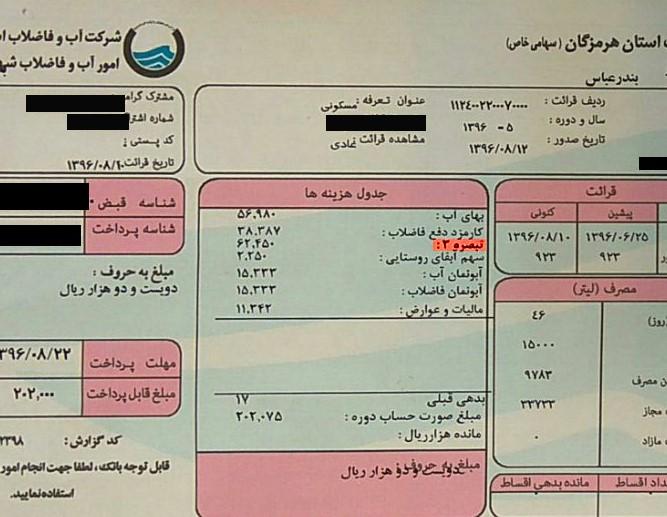 شرکت آب و فاضلاب
امور آب و فاضلاب
استان هرمزگان (سهامی خاص)
بندرعباس
ردیف قرائت : ۱۱۲۴۰۰۲۲۰۰۰۷۰۰۰۰
عنوان تعرفه : مسکونی
سال و دوره : ۵ - ۱۳۹۶
تاریخ صدور : ۱۳۹۶/۰۸/۱۲
مشاهده قرائت عادی
مشترک
شماره
کد پستی :
تاریخ قرائت ۱۳۹۶/۰۸/۱۰
شناسه قبض
شناسه پرداخت
مبلغ به حروف :
دویست و دو هزار ریال
مهلت پرداخت ۳۹۶/۰۸/۲۲
مبلغ قابل پرداخت ۲۰۲,۰۰۰
کد گزارش : ۲۳۹۸
قابل توجه بانک، لطفا جهت انجام امور
استفاده نمایید.
جدول هزینه ها
بهای آب : ۵۶,۹۸۰
کارمزد دفع فاضلاب : ۳۸,۳۸۷
تبصره ۳ : ۶۲,۴۵۰
سهم آبفای روستایی : ۲,۲۵۰
آبونمان آب : ۱۵,۳۳۳
آبونمان فاضلاب : ۱۵,۳۳۳
مالیات و عوارض : ۱۱,۳۴۲
بدهی قبلی ۱۷
مبلغ صورت حساب دوره : ۲۰۲,۰۷۵
مانده هزارریال :
مبلغ به حروف :
دویست و دو هزار ریال
قرائت
پیشین کنونی
۱۳۹۶/۰۶/۲۵ ۱۳۹۶/۰۸/۱۰
۹۲۳ ۹۲۳
مصرف (لیتر)
روز) ۴۶
۱۵۰۰۰
مصرف ۹۷۸۳
مجاز ۳۳۷۳۳
مازاد ۰
اقساط مانده بدهی اقساط